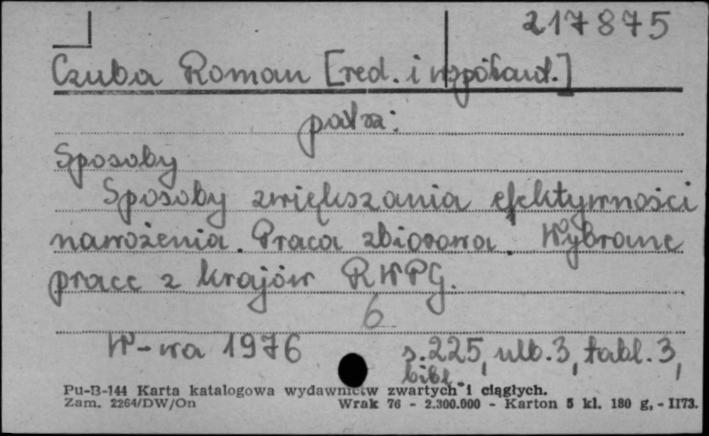 217875
Czuba Roman [red. i współaut.]
patrz:
Sposoby
Sposoby zwiększania efektywności
nawożenia. Praca zbiorowa. Wybrane
prace z krajów RWPG.
6
W-wa 1976 s. 225, ulb. 3, tabl. 3,
bibl.
Pu-B-144 Karta katalogowa wydawnictw zwartych i ciągłych.
Zam. 2264/DW/On Wrak 76 - 2.300.000 - Karton 5 kl. 180 g, - II73.